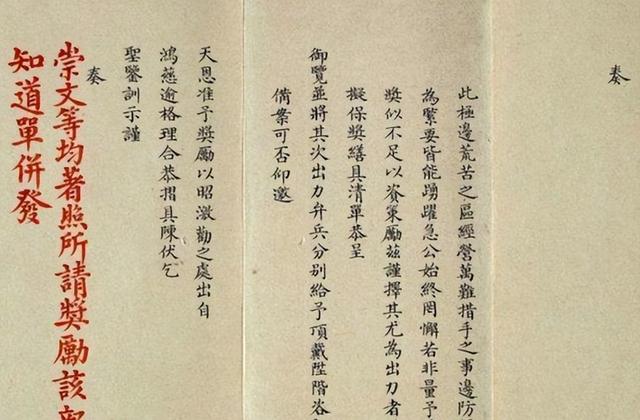 奏
此極邊荒苦之區經營萬難措手之事邊防
為緊要皆能踴躍急公始終罔懈若非量予
獎似不足以資策勵茲謹擇其尤為出力者
擬保獎繕具清單恭呈
御覽並將其次出力弁兵分別給予頂戴陞階咨
備案可否仰邀
天恩准予獎勵以昭激勸之處出自
鴻慈逾格理合恭摺具陳伏乞
聖鑒訓示謹
奏
崇文等均著照所請獎勵該
知道單併發